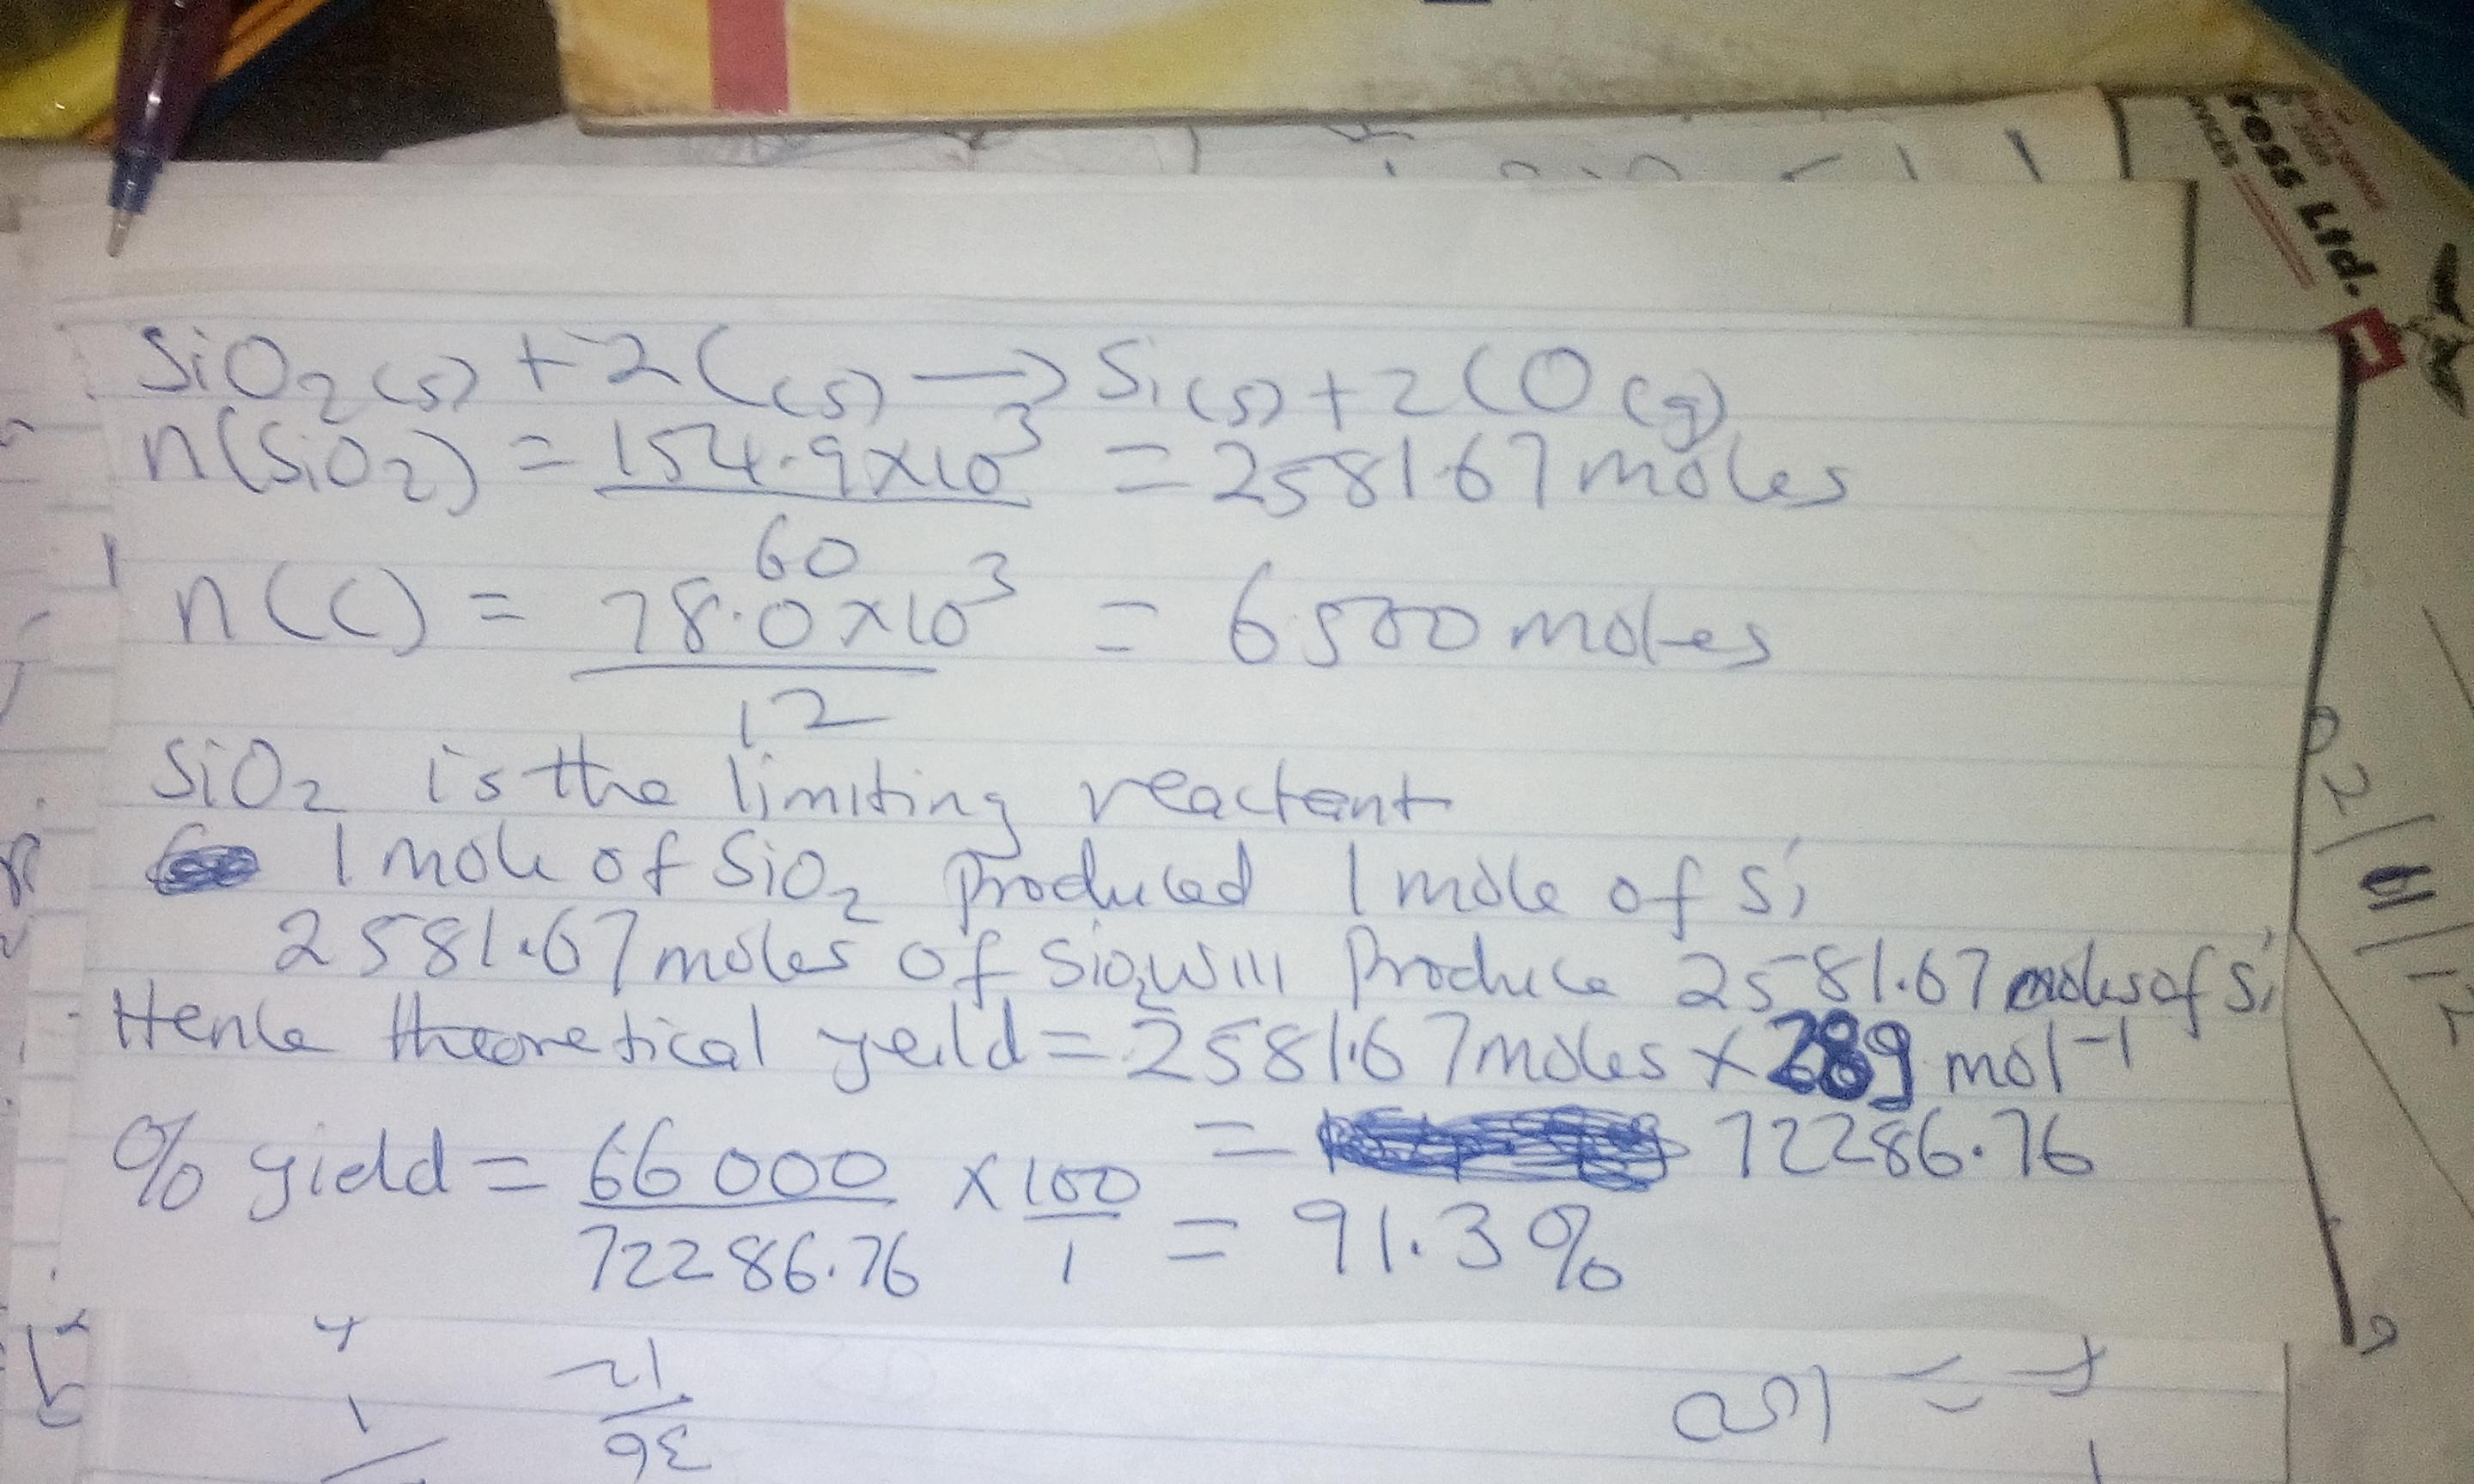 SiO2(s) + 2C(s) → Si(s) + 2CO(g)
n(SiO2) = 154.9x10^3 / 60 = 2581.67 moles
n(C) = 78.0x10^3 / 12 = 6500 moles
SiO2 is the limiting reactant
1 mole of SiO2 produced 1 mole of Si
2581.67 moles of SiO2 will produce 2581.67 moles of Si
Hence theoretical yeild = 2581.67 moles x 28g mol^-1
= 72286.76
% yield = 66000 / 72286.76 x 100 / 1 = 91.3%
ress Ltd.